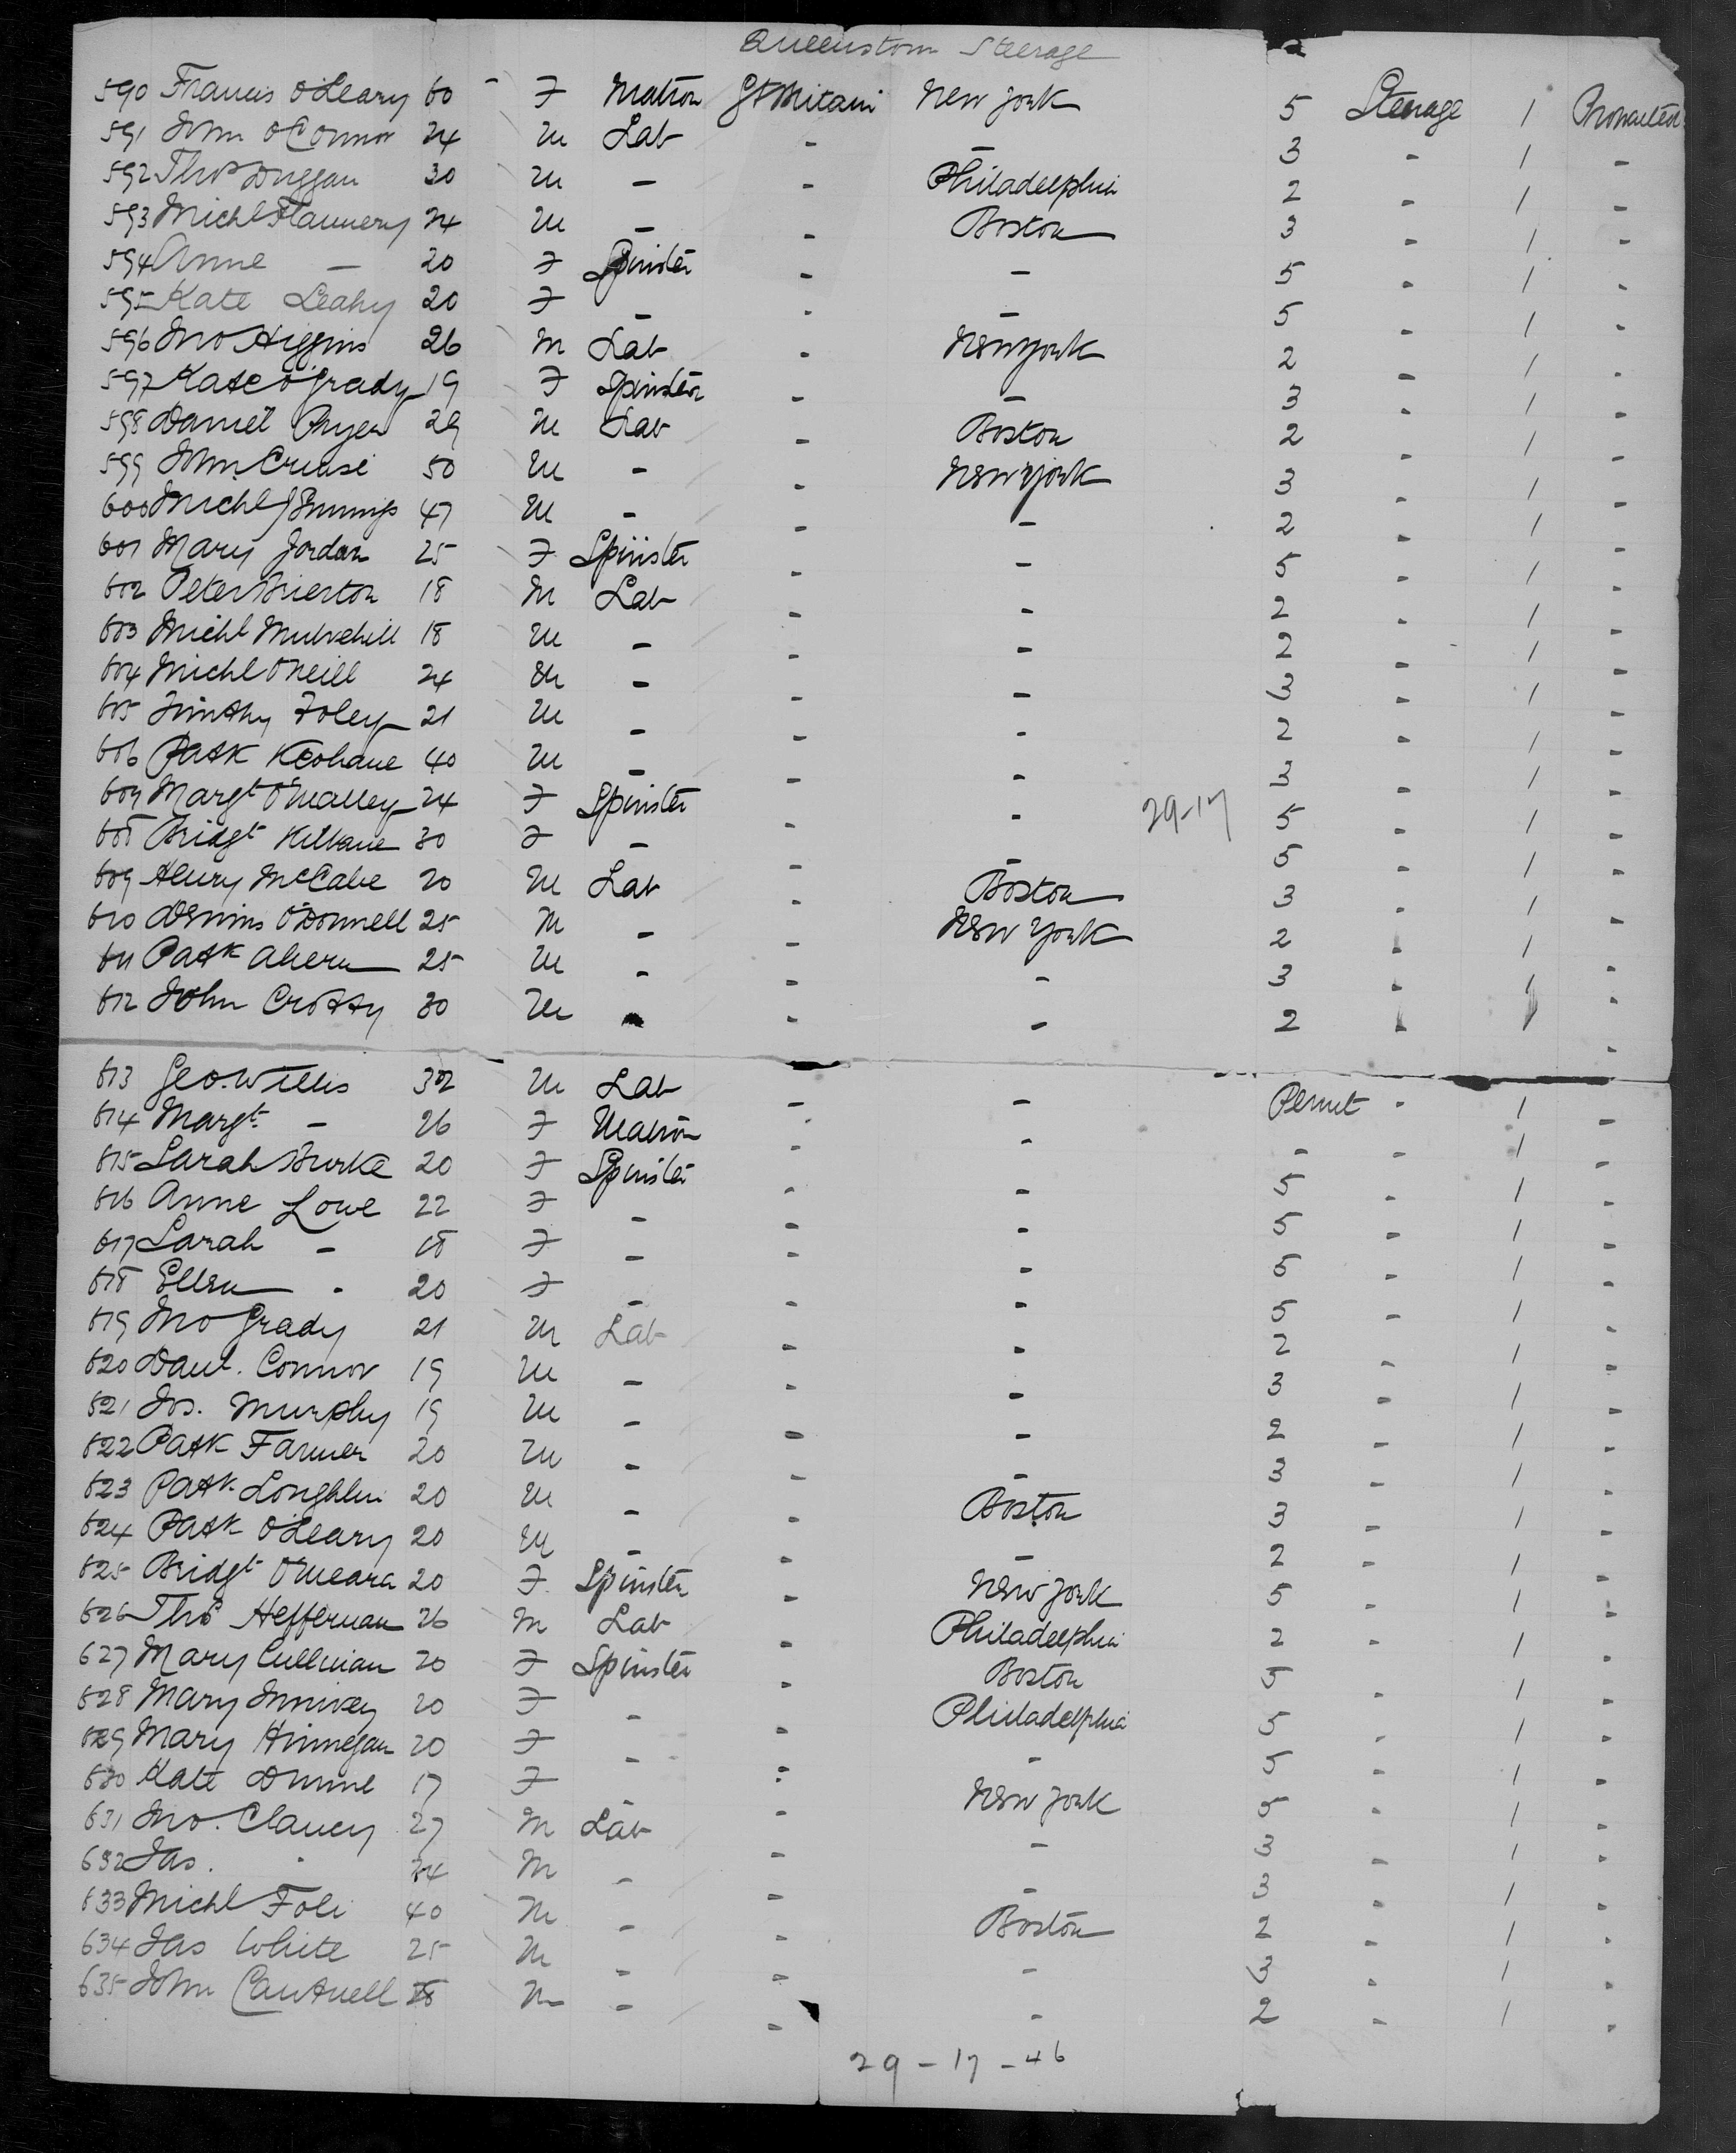 Queenstown Steerage
590 Francis O'Leary 60 - F Matron Gt Britain New York 5 Steerage 1 Protracted
591 John O'Connor 24 M Lab - - 3 - 1 -
592 Thos Duggan 30 M - - Philadelphia 2 - 1 -
593 Michl Flannery 24 M - - Boston 3 - 1 -
594 Anne - 20 F Spinster - - 5 - 1 -
595 Kate Leahy 20 F - - - 5 - 1 -
596 Jno Higgins 26 M Lab - New York 2 - 1 -
597 Kate O'Grady 19 F Spinster - - 3 - 1 -
598 Daniel 29 M Lab - Boston 2 - 1 -
599 John 50 M - - New York 3 - 1 -
600 Michl Jennings 47 M - - - 2 - 1 -
601 Mary Jordan 25 F Spinster - - 5 - 1 -
602 Peter Brierton 18 M Lab - - 2 - 1 -
603 Michl Mulvehill 18 M - - - 2 - 1 -
604 Michl O'Neill 24 M - - - 3 - 1 -
605 Timothy Foley 21 M - - - 2 - 1 -
606 Patk Keohane 40 M - - - 3 - 1 -
607 Margt O'Malley 24 F Spinster - - 29-17 5 - 1 -
608 Bridgt 30 F - - - 5 - 1 -
609 Henry McCabe 20 M Lab - Boston 3 - 1 -
610 Dennis O'Donnell 25 M - - New York 2 - 1 -
611 Patk Ahern 25 M - - - 3 - 1 -
612 John Crotty 30 M - - - 2 - 1 -
613 Geo. Willis 32 M Lab - - Permit - 1 -
614 Margt. - 26 F Matron - - - - 1 -
615 Sarah Burke 20 F Spinster - - 5 - 1 -
616 Anne Lowe 22 F - - - 5 - 1 -
617 Sarah - 18 F - - - 5 - 1 -
618 Ellen - 20 F - - - 5 - 1 -
619 Jno Grady 21 M Lab - - 2 - 1 -
620 Danl. Connor 19 M - - - 3 - 1 -
621 Jos. Murphy 19 M - - - 2 - 1 -
622 Patk Farmer 20 M - - - 3 - 1 -
623 Patk. Loughlin 20 M - - Boston 3 - 1 -
624 Patk O'Leary 20 M - - - 2 - 1 -
625 Bridgt O'Meara 20 F Spinster - New York 5 - 1 -
626 Thos Heffernan 26 M Lab - Philadelphia 2 - 1 -
627 Mary Cullinan 20 F Spinster - Boston 5 - 1 -
628 Mary 20 F - - Philadelphia 5 - 1 -
629 Mary Hinnegan 20 F - - - 5 - 1 -
630 Kate 17 F - - New York 5 - 1 -
631 Jno. Clancy 27 M Lab - - 3 - 1 -
632 Jas. - 24 M - - - 3 - 1 -
633 Michl Foli 40 M - - Boston 2 - 1 -
634 Jas White 25 M - - - 3 - 1 -
635 John Cantwell 18 M - - - 2 - 1 -
29 - 17 - 46